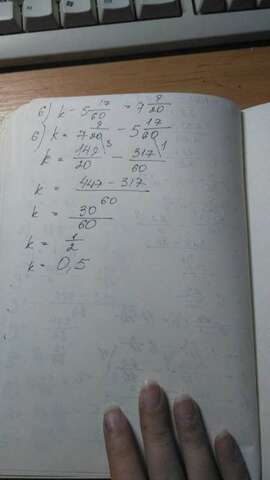 б) k - 5 17/60 = 7 9/20
б) k = 7 9/20 - 5 17/60
k = 149/20 \3 - 317/60 \1
k = 447 - 317/60
k = 30/60
k = 1/2
k = 0,5